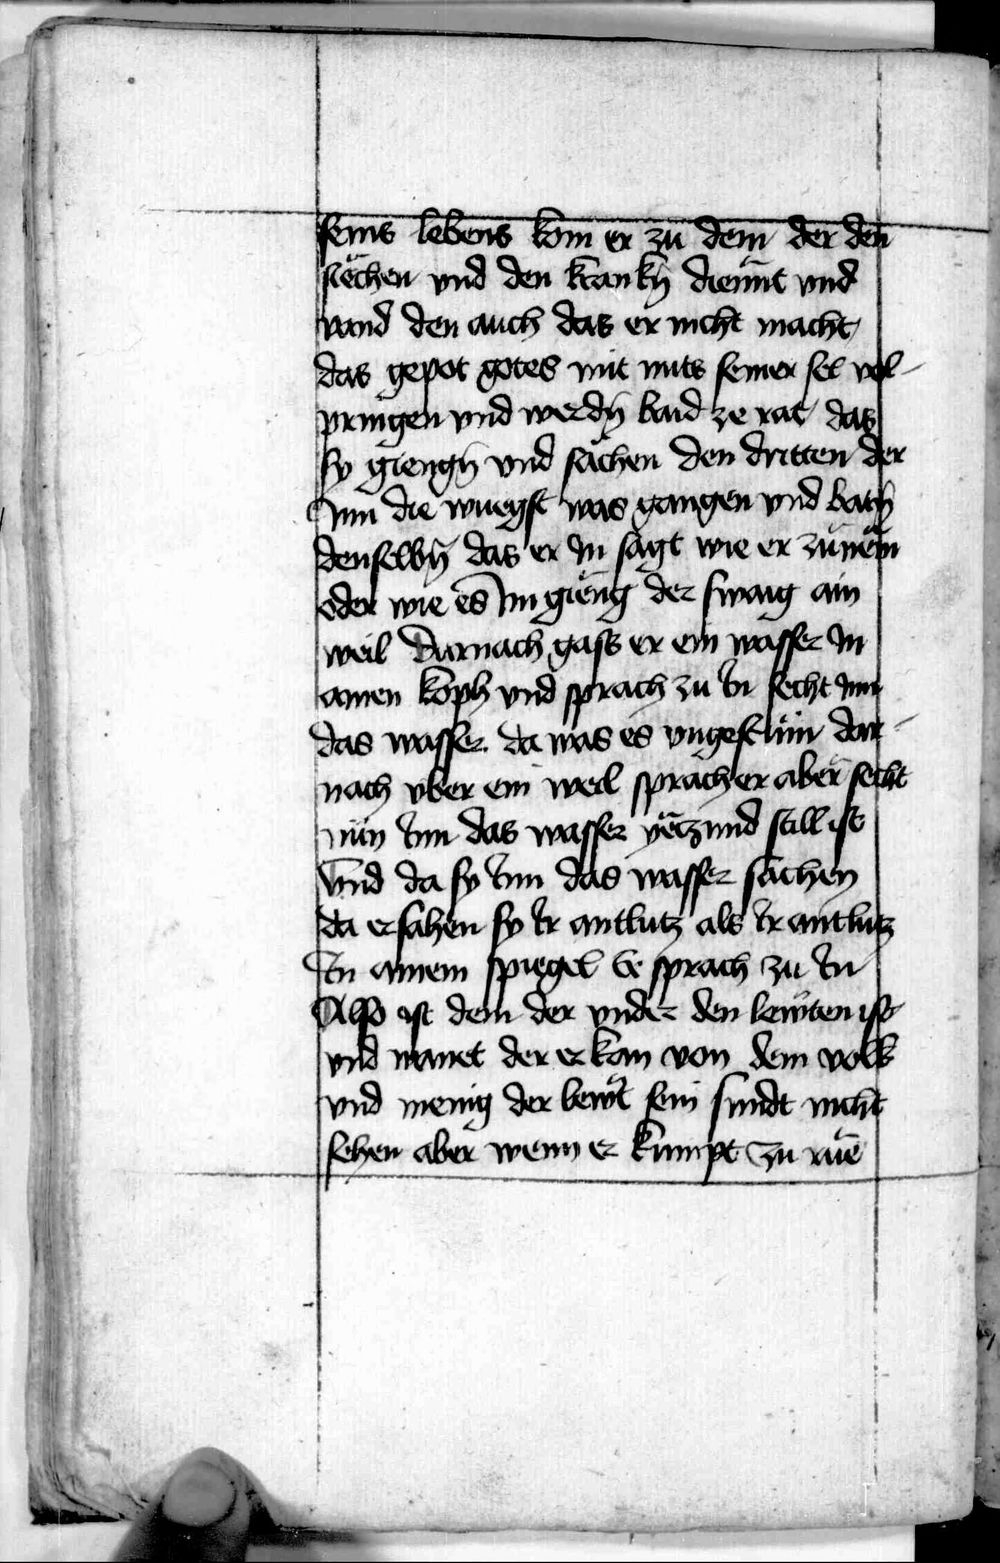 seins lebens kom er zu dem der den
siechen vnd den krankn̄ dient vnd
vand den auch das er nicht macht
das gepot gotes mit nuts seiner sel vol-
pringen vnd werdn̄ baid ze rat das
sy giengn̄ vnd sachen den dritten der
Inn die wuest was gangen vnd batn̄
denselbn̄ das er In sagt wie er zunem
oder wie es Im gieng der swaig ain
weil Darnach gass er ein wasser In
ainen koph vnd sprach zu In secht Inn
das wasser. da was es vngestüm dar-
nach vber ein weil sprach er aber secht
nün Inn das wasser yeczund still ist
Vnd da sy Inn das wasser sachen
da ersahen sy Ir antlutz als Ir antlutz
In ainem spiegel Er sprach zu In
Also ist dem der vnder den lewten ist
vnd wanet der er kan von dem volk
vnd menig der lewt sein sundt nicht
sehen aber wenn er kumpt zu rue